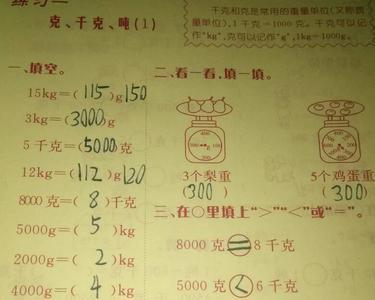 克、千克、吨(1)
千克和克是常用的重量单位(又称质
量单位),1千克=1000克。千克可以记
作"kg",克可以记作"g",1kg=1000g。
一、填空。
15kg=( 115 )g 150
3kg=(3000)g
5千克=(5000)克
12kg=(112)g 120
8000克=( 8 )千克
5000g=( 5 )kg
2000g=( 2 )kg
4000g=( 4 )kg
二、看一看,填一填。
3个梨重
(300 )
5个鸡蛋重
( 300 )
三、在○里填上">""<"或"="。
8000克 = 8千克
5000克 < 6千克